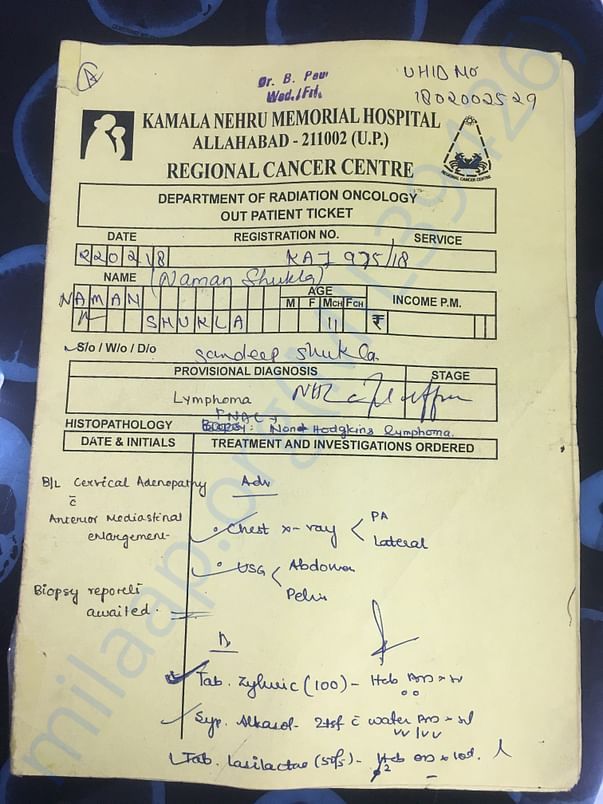 A
Dr. B. Paul
Wed./Fri.
UHID No
1802002529
KAMALA NEHRU MEMORIAL HOSPITAL
ALLAHABAD - 211002 (U.P.)
REGIONAL CANCER CENTRE
REGIONAL CANCER CENTRE
DEPARTMENT OF RADIATION ONCOLOGY
OUT PATIENT TICKET
DATE REGISTRATION NO. SERVICE
220218 975/18
NAME (Naman Shukla) AGE
NAMAN M F MCH FCH INCOME P.M.
SHUKLA 11 ₹
S/o / W/o / D/o Sandeep Shukla
PROVISIONAL DIAGNOSIS STAGE
Lymphoma NHL
FNAC
HISTOPATHOLOGY Biopsy: Non Hodgkins lymphoma.
DATE & INITIALS TREATMENT AND INVESTIGATIONS ORDERED
B/L Cervical Adenopathy Adv
c̄
Anterior Mediastinal
enlargement
• Chest x-ray < PA
Lateral
• USG < Abdomen
Pelvis
Biopsy report
awaited.
Tab. Zyloric (100) -
Syp. Alkasol - 2tsf c̄ water
Tab. Lasilactone (50) -
milaap.org